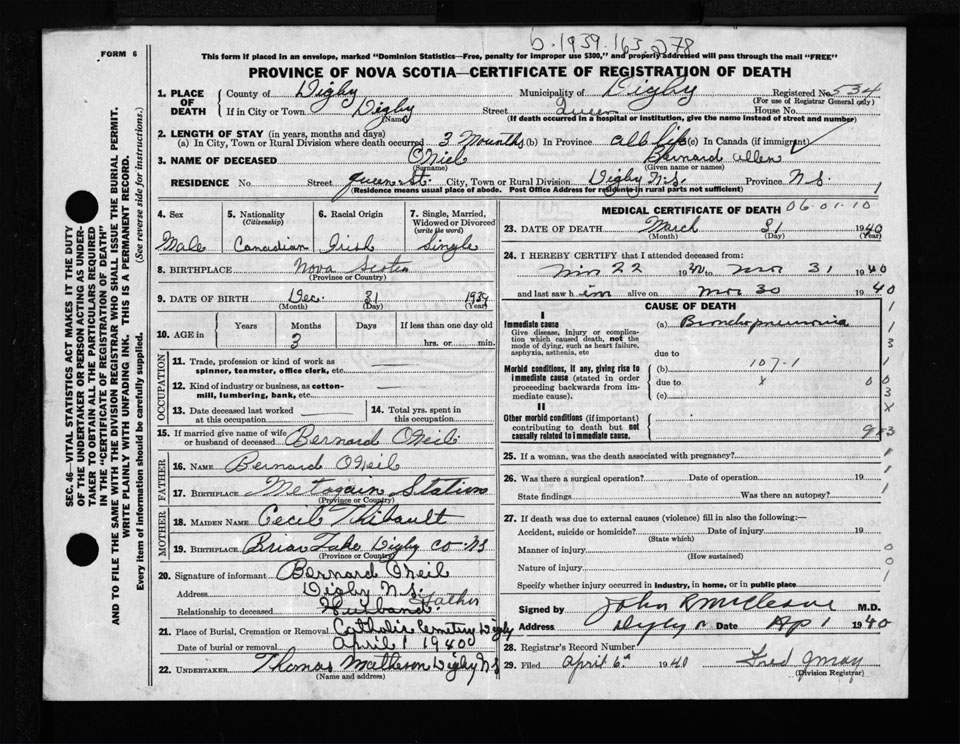 b.1939.163.2278
FORM 6
This form if placed in an envelope, marked "Dominion Statistics—Free, penalty for improper use $300," and properly addressed will pass through the mail "FREE"
PROVINCE OF NOVA SCOTIA—CERTIFICATE OF REGISTRATION OF DEATH
SEC. 46—VITAL STATISTICS ACT MAKES IT THE DUTY
OF THE UNDERTAKER OR PERSON ACTING AS UNDER-
TAKER TO OBTAIN ALL THE PARTICULARS REQUIRED
IN THE "CERTIFICATE OF REGISTRATION OF DEATH"
AND TO FILE THE SAME WITH THE DIVISION REGISTRAR WHO SHALL ISSUE THE BURIAL PERMIT.
WRITE PLAINLY WITH UNFADING INK. THIS IS A PERMANENT RECORD.
Every item of information should be carefully supplied. (See reverse side for instructions.)
1. PLACE OF DEATH County of Digby Municipality of Digby Registered No. 534
(For use of Registrar General only)
If in City or Town Digby Street Queen House No.
(Name) (If death occurred in a hospital or institution, give the name instead of street and number)
2. LENGTH OF STAY (in years, months and days)
(a) In City, Town or Rural Division where death occurred 3 Mounths (b) In Province all life (c) In Canada (if immigrant)
3. NAME OF DECEASED ONeil Bernard Allen
(Surname) (Given name or names)
RESIDENCE No. Street Queen St. City, Town or Rural Division Digby N.S. Province N.S. 1
(Residence means usual place of abode. Post Office Address for residents in rural parts not sufficient)
4. Sex Male
5. Nationality (Citizenship) Canadian
6. Racial Origin Irish
7. Single, Married, Widowed or Divorced (write the word) Single
8. BIRTHPLACE Nova Scotia
(Province or Country)
9. DATE OF BIRTH Dec. 31 1939
(Month) (Day) (Year)
10. AGE in Years Months Days If less than one day old
3 hrs. or min.
OCCUPATION
11. Trade, profession or kind of work as spinner, teamster, office clerk, etc.
12. Kind of industry or business, as cotton-mill, lumbering, bank, etc.
13. Date deceased last worked at this occupation
14. Total yrs. spent in this occupation
15. If married give name of wife or husband of deceased Bernard ONeil
FATHER
16. NAME Bernard ONeil
17. BIRTHPLACE Metegain Station
(Province or Country)
MOTHER
18. MAIDEN NAME Cecil Thibault
19. BIRTHPLACE Briar Lake Digby Co NS
(Province or Country)
20. Signature of informant Bernard ONeil
Address Digby N.S.
Relationship to deceased Husband. Father
21. Place of Burial, Cremation or Removal Catholic Cemetery Digby
Date of burial or removal April 1 1940
22. UNDERTAKER Thomas Matheson Digby NS
(Name and address)
MEDICAL CERTIFICATE OF DEATH 06.01.10
23. DATE OF DEATH March 31 1940
(Month) (Day) (Year)
24. I HEREBY CERTIFY that I attended deceased from:
Mar 22 1940 to Mar 31 1940
and last saw him alive on Mar 30 1940
CAUSE OF DEATH
I
Immediate cause (a) Bronchopneumonia
Give disease, injury or complication which caused death, not the mode of dying, such as heart failure, asphyxia, asthenia, etc
due to
Morbid conditions, if any, giving rise to immediate cause (stated in order proceeding backwards from immediate cause). (b) 107-1
due to x
(c)
II
Other morbid conditions (if important) contributing to death but not causally related to immediate cause.
25. If a woman, was the death associated with pregnancy?
26. Was there a surgical operation? Date of operation 19
State findings Was there an autopsy?
27. If death was due to external causes (violence) fill in also the following:—
Accident, suicide or homicide? Date of injury 19
(State which)
Manner of injury
(How sustained)
Nature of injury
Specify whether injury occurred in industry, in home, or in public place
Signed by John R McCleave M.D.
Address Digby Date Ap 1 1940
28. Registrar's Record Number
29. Filed April 6 1940 Fred Jmay
(Division Registrar)